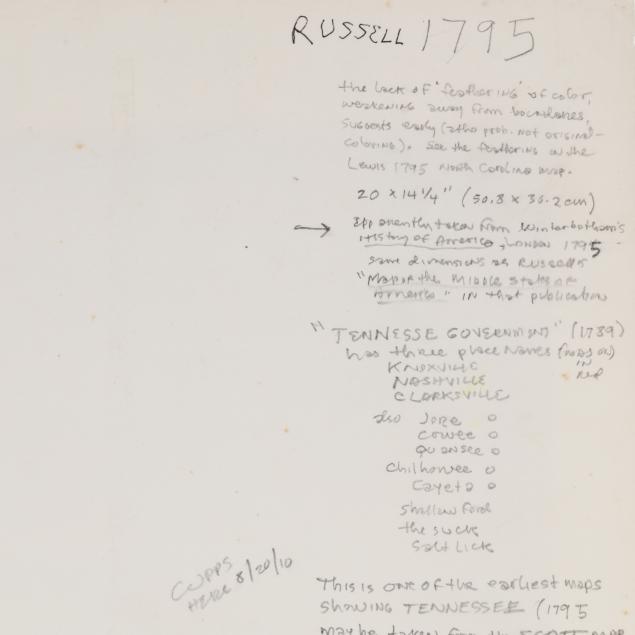 RUSSELL 1795
the lack of "feathering" of color,
weakening away from boundaries,
suggests early (altho prob. not original
coloring). See the feathering on the
Lewis 1795 North Carolina map.
20 x 14 1/4" (50.8 x 36.2 cm)
→ Apparently taken from Winterbotham's
History of America, LONDON 1795
same dimensions as RUSSELL'S
"Map of the Middle States of
America" IN that publication
"TENNESSE GOVERNMENT" (1789)
has three place names (roads on)
in red
KNOXVILLE
NASHVILLE
CLARKSVILLE
also Jore o
Cowee o
Quansee o
Chilhowee o
Cayeta o
Shallow Ford
the suck
Salt Lick
CUPPS
HERE 8/20/10
This is ONE of the earliest maps
showing TENNESSEE (1795
may be taken from the SCOTT MAP